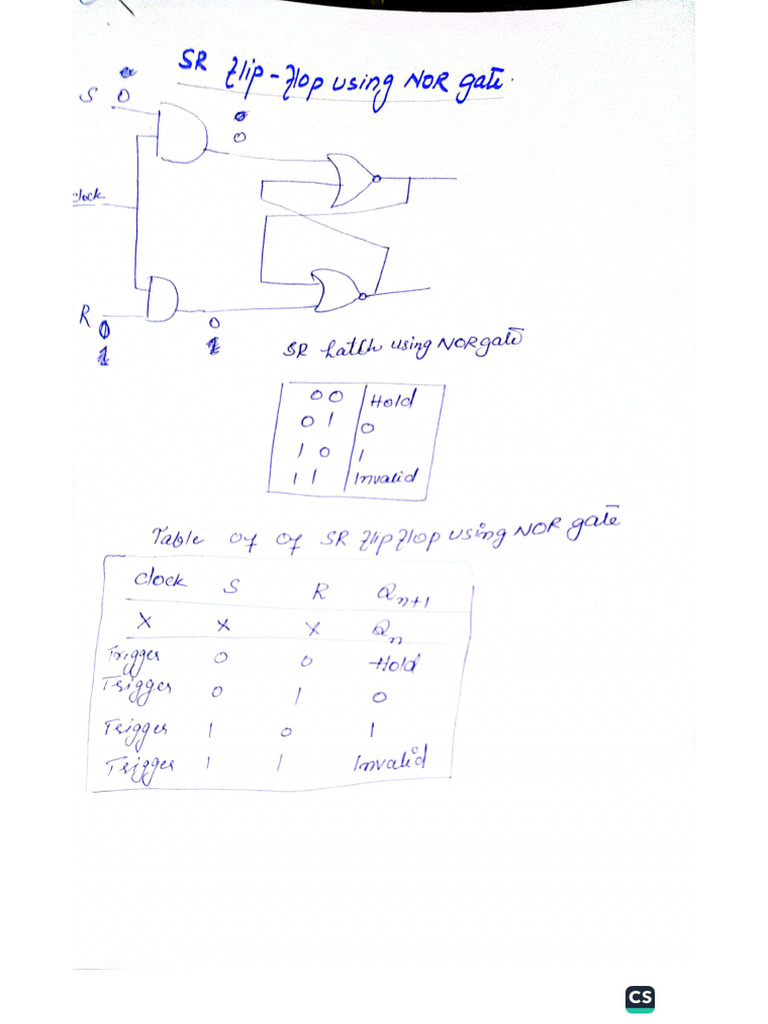 SR flip-flop using NOR gate.
S 0
0
clock
R 0
1
0
1
SR Latch using NOR gate
0 0 Hold
0 1 0
1 0 1
1 1 Invalid
Table of of SR flip flop using NOR gate
Clock S R Qn+1
X X X Qn
Trigger 0 0 Hold
Trigger 0 1 0
Trigger 1 0 1
Trigger 1 1 Invalid
CS